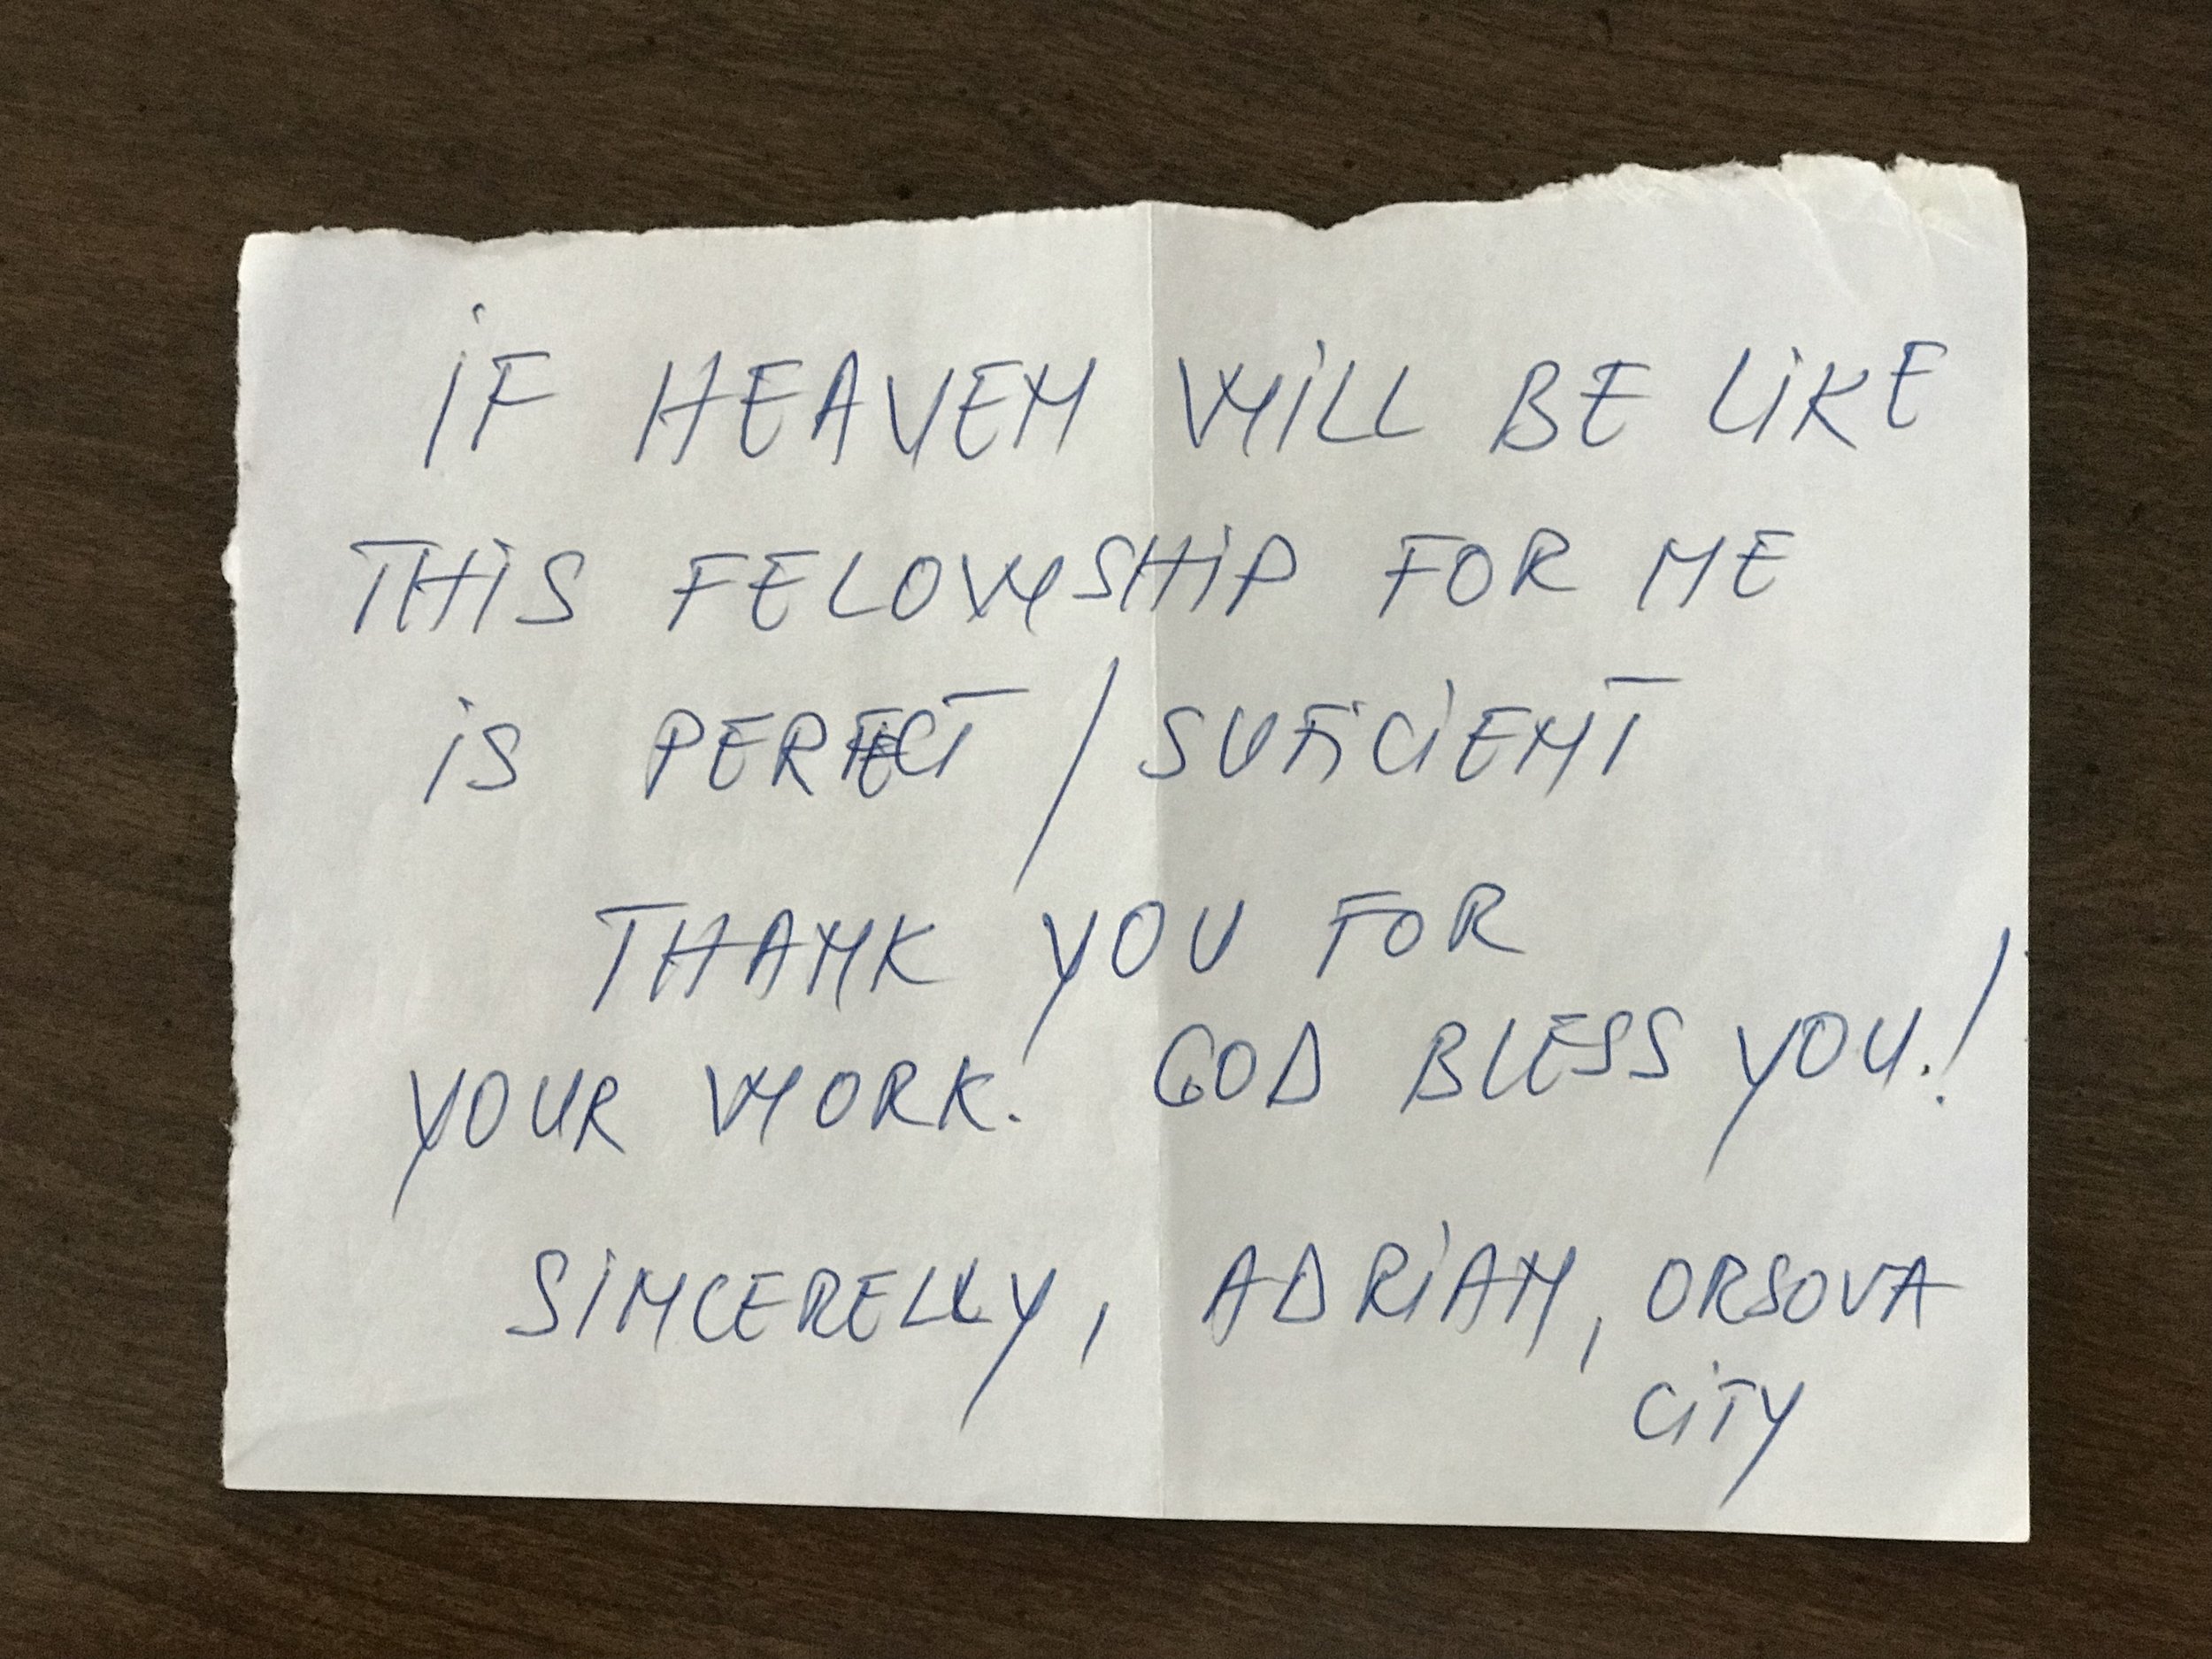 iF HEAVEN WiLL BE LiKE
THiS FELOWSHiP FOR ME
iS PERFECT / SUFiCiENT
THANK YOU FOR
YOUR WORK. GOD BLESS YOU.!
SiNCERELLY, ADRiAN, ORSOVA
CiTY